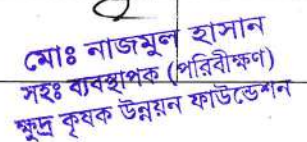 মোঃ নাজমুল হাসান
সহঃ ব্যবস্থাপক (পরিবীক্ষণ)
ক্ষুদ্র কৃষক উন্নয়ন ফাউন্ডেশন